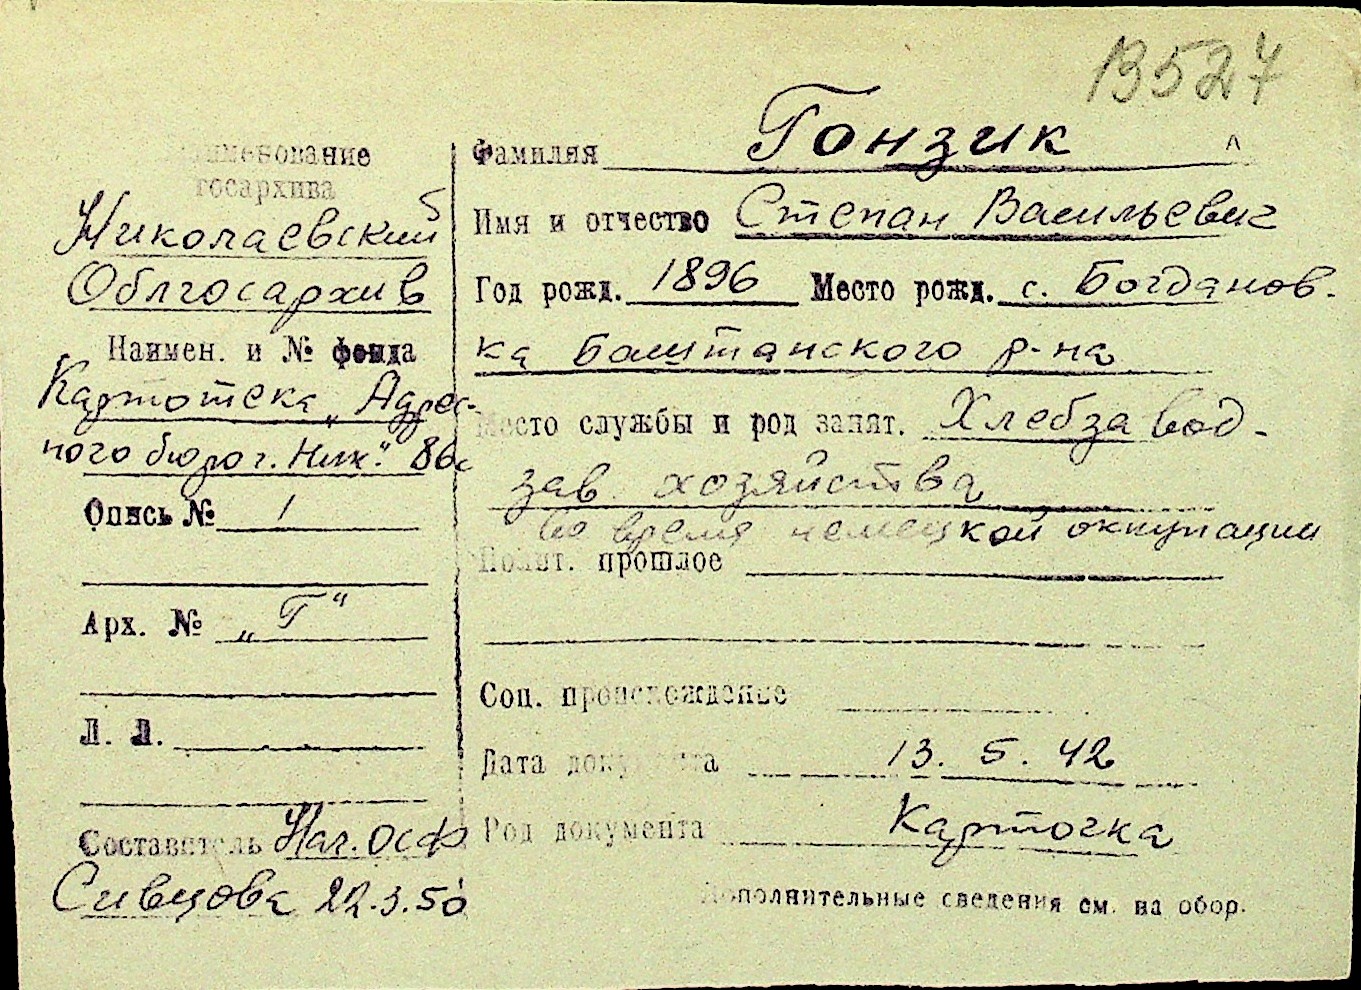 13527
Наименование
госархива
Николаевский
Облгосархив
Наимен. и № фонда
Картотека „Адрес-
ного бюро г. Ник." 86с
Опись № 1
Арх. № „Г"
Л. Л.
Составитель Нач. ОСФ
Сивцова 22.3.50
Фамилия Гонзик
Имя и отчество Степан Васильевич
Год рожд. 1896 Место рожд. с. Богданов-
ка Баштанского р-на
Место службы и род занят. Хлебзавод -
зав. хозяйства
во время немецкой оккупации
Полит. прошлое
Соц. происхождение
Дата документа 13. 5. 42
Род документа Карточка
Дополнительные сведения см. на обор.